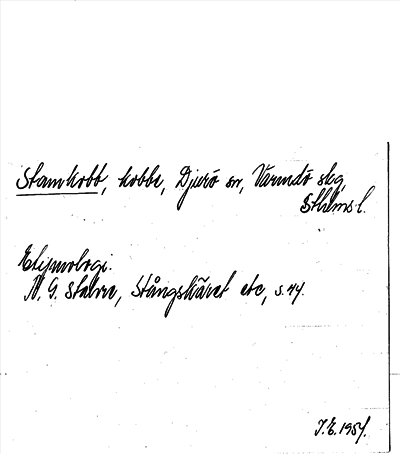 Stamkobb, kobbe, Djurö sn, Värmdö skg,
Sthlms l.
Etymologi:
N. G. Stahre, Stångskäret etc, s. 44.
J. E. 1954.